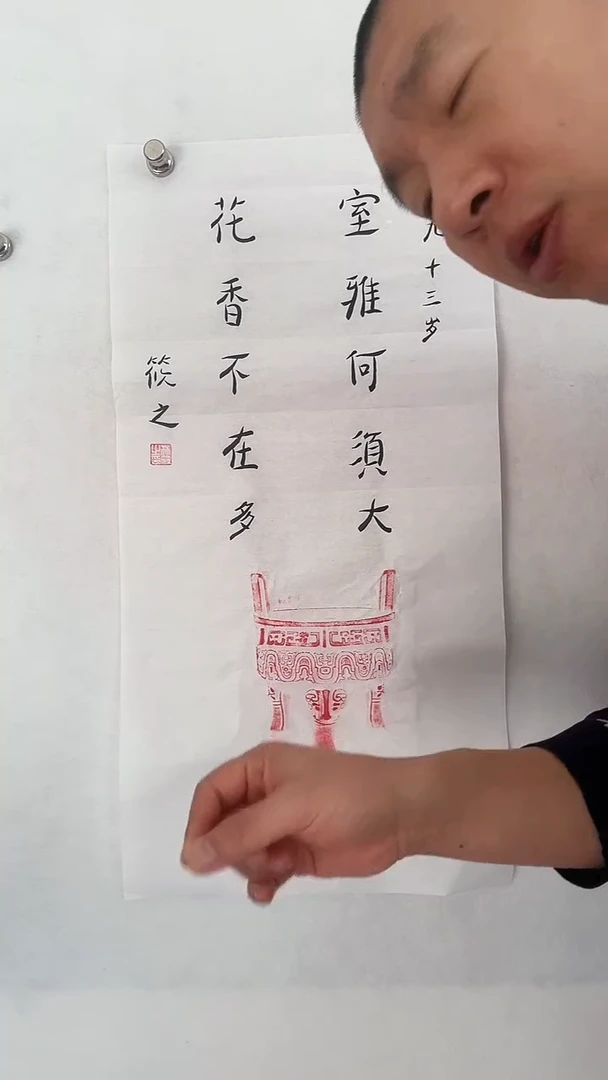 九十三岁
室雅何須大
花香不在多
筱之